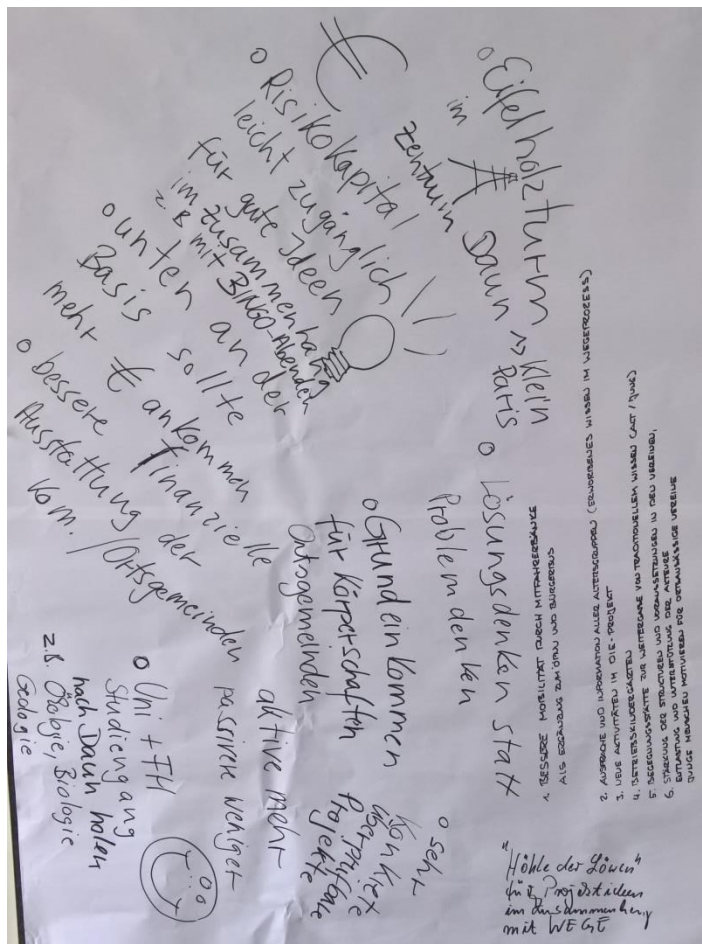 o Eifelholzturm
im Zentrum Daun ~> Klein
Paris
€
o Risikokapital
leicht zugänglich
für gute Ideen
im Zusammenhang
z.B mit BINGO-Abenden
o unten an der
Basis sollte
mehr € ankommen
o bessere finanzielle
Ausstattung der
Kom./Ortsgemeinden
o Lösungsdenken statt
Problemdenken
o Grundeinkommen
für Körperschaften
Ortsgemeinden
aktive mehr
passiven weniger
o Uni + FH
Studiengang
nach Daun holen
z.B. Ökologie, Biologie
Geologie
o sehr
konkrete
überprüfbare
Projekte
1. BESSERE MOBILITÄT DURCH MITFAHRERBÄNKE
ALS ERGÄNZUNG ZUM ÖPNV UND BÜRGERBUS
2. ANSPRACHE UND INFORMATION ALLER ALTERSGRUPPEN (ERWORBENES WISSEN IM WEGEPROZESS)
3. NEUE ACTIVITÄTEN IM DIE-PROJEKT
4. BETRIEBSKINDERGÄRTEN
5. BEGEGNUNGSSTÄTTE ZUR WEITERGABE VON TRADITIONELLEM WISSEN (ALT / JUNG)
6. STÄRKUNG DER STRUKTUREN UND VORAUSSETZUNGEN IN DEN VEREINEN,
ENTLASTUNG UND UNTERSTÜTZUNG DER AKTEURE
JUNGE MENSCHEN MOTIVIEREN FÜR ORTSANSÄSSIGE VEREINE
"Höhle der Löwen"
für Projektideen
im Zusammenhang
mit WEGE